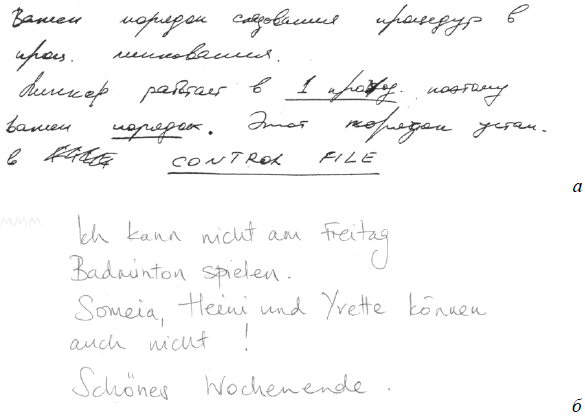 Важен порядок следования процедур в
проц. линкования.
Линкер работает в 1 проход. поэтому
важен порядок. Этот порядок устан.
в CONTROL FILE
а
Ich kann nicht am Freitag
Badminton spielen.
Someia, Heini und Yvette können
auch nicht !
Schönes Wochenende.
б